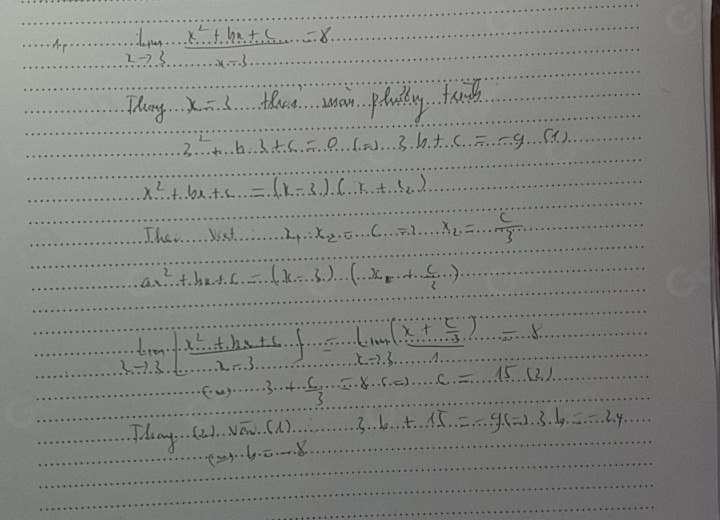 1, lim x→3 x² + bx + c / x - 3 = 8
Thay x = 3 thỏa mãn phương trình
3² + b.3 + c = 0 (=) 3.b + c = -9 (1)
x² + bx + c = (x - 3)(x + x₂)
Theo Viet: x₁.x₂ = c => x₂ = c/3
ax² + bx + c = (x - 3)(x + c/3)
lim x→3 [x² + bx + c / x - 3] = lim x→3 (x + c/3) / 1 = 8
(=) 3 + c/3 = 8 (=) c = 15 (2)
Thay (2) vào (1) : 3.b + 15 = -9 (=) 3.b = -24
(=) b = -8